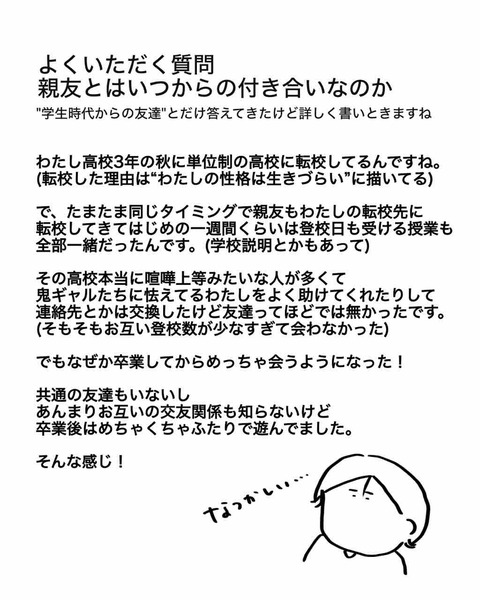 よくいただく質問
親友とはいつからの付き合いなのか
"学生時代からの友達"とだけ答えてきたけど詳しく書いときますね
わたし高校3年の秋に単位制の高校に転校してるんですね。
(転校した理由は“わたしの性格は生きづらい”に描いてる)
で、たまたま同じタイミングで親友もわたしの転校先に
転校してきてはじめの一週間くらいは登校日も受ける授業も
全部一緒だったんです。(学校説明とかもあって)
その高校本当に喧嘩上等みたいな人が多くて
鬼ギャルたちに怯えてるわたしをよく助けてくれたりして
連絡先とかは交換したけど友達ってほどでは無かったです。
(そもそもお互い登校数が少なすぎて会わなかった)
でもなぜか卒業してからめっちゃ会うようになった！
共通の友達もいないし
あんまりお互いの交友関係も知らないけど
卒業後はめちゃくちゃふたりで遊んでました。
そんな感じ！
なつかしい…